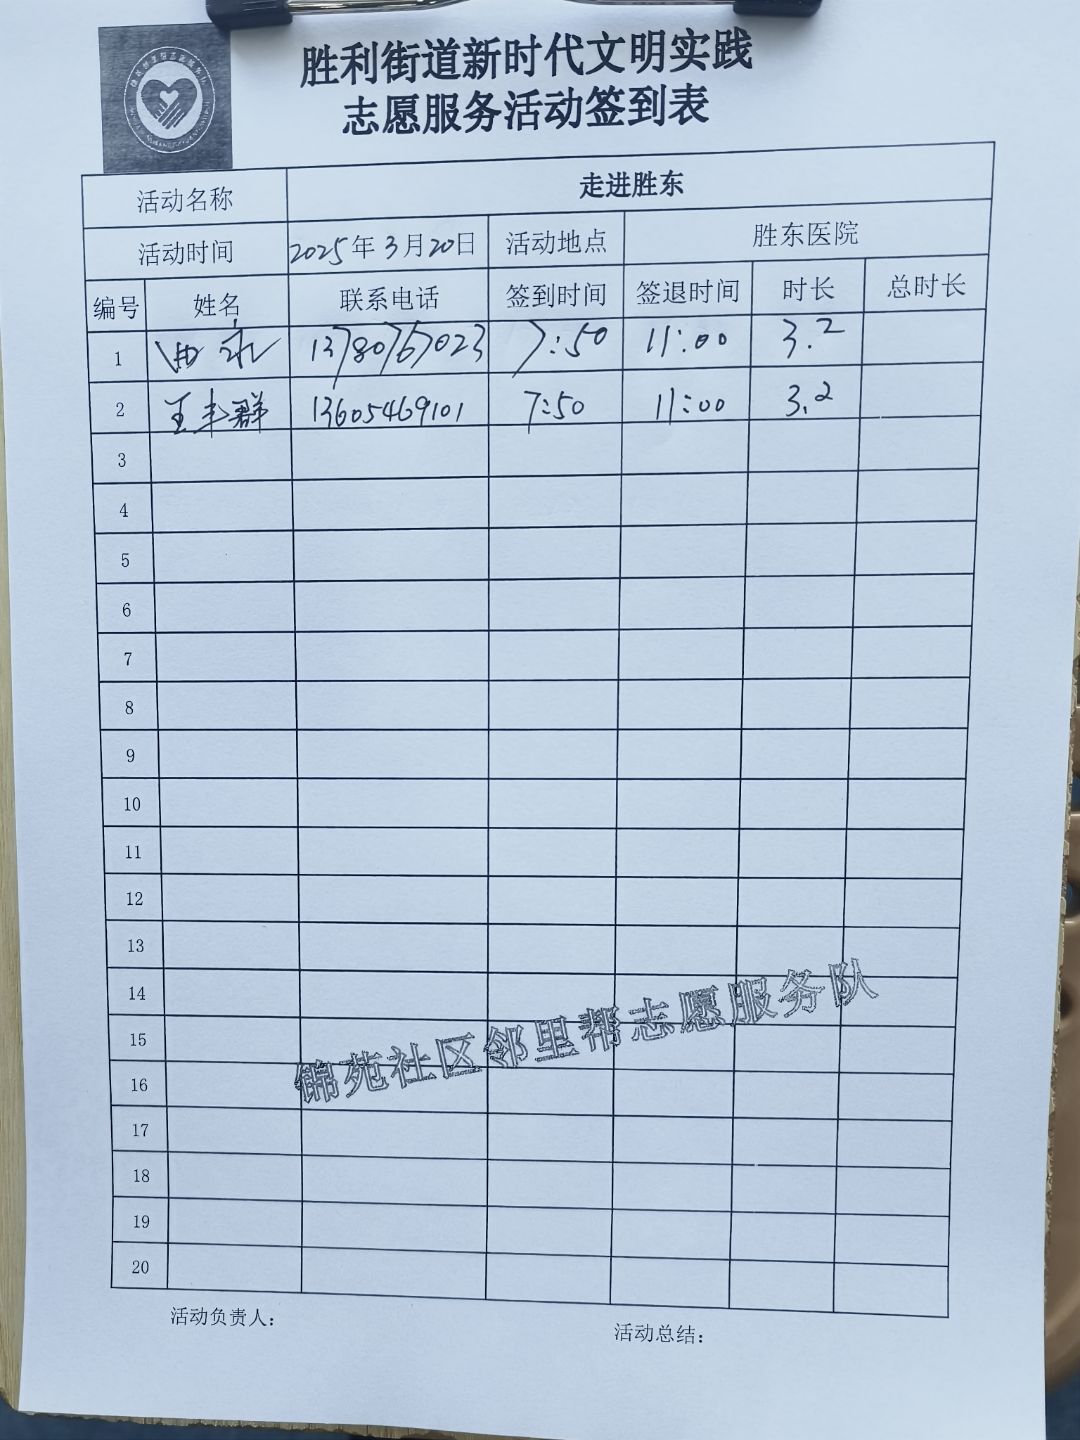 胜利街道新时代文明实践
志愿服务活动签到表
活动名称 走进胜东
活动时间 2025年3月20日 活动地点 胜东医院
编号 姓名 联系电话 签到时间 签退时间 时长 总时长
1 13780767023 7:50 11:00 3.2
2 王丰群 13605469101 7:50 11:00 3.2
3
4
5
6
7
8
9
10
11
12
13
14
15
16
17
18
19
20
锦苑社区邻里帮志愿服务队
活动负责人：
活动总结：